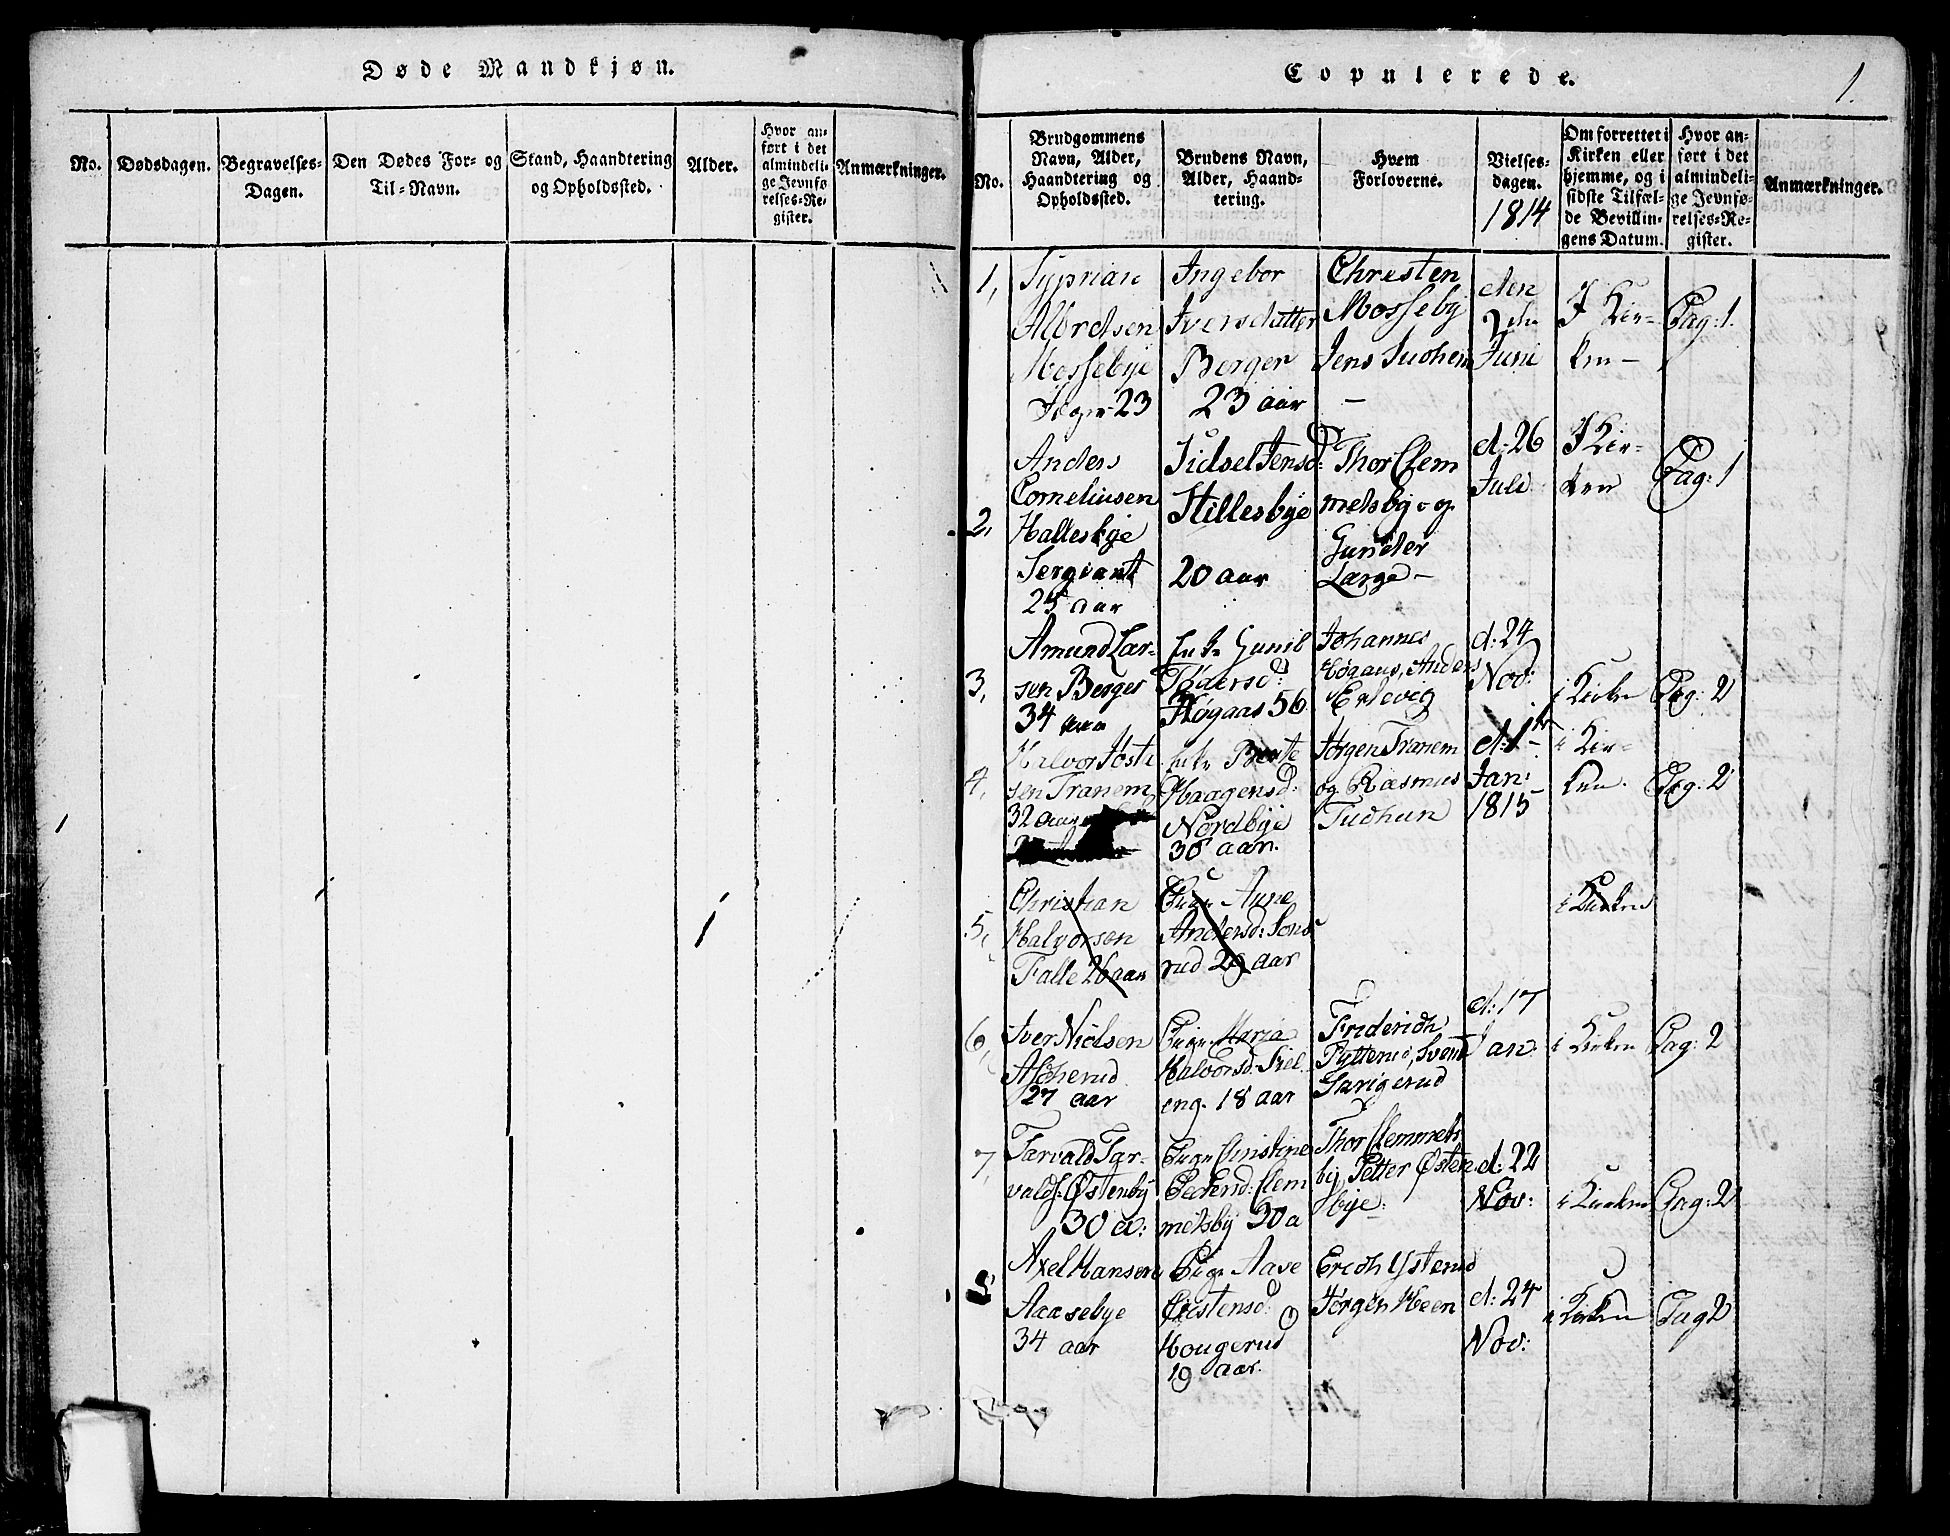 Døde Mandkjøn.
No.
Dødsdagen.
Begravelses-
Dagen.
Den Dødes For- og
Til-Navn.
Stand, Haandtering
og Opholdssted.
Alder.
Hvor an-
ført i det
almindeli-
ge Jevnfø-
relses-Re-
gister.
Anmærkninger.
Copulerede.
1.
No.
Brudgommens
Navn, Alder,
Haandtering og
Opholdssted.
Brudens Navn,
Alder, Haand-
tering.
Hvem
Forloverne.
Vielses-
dagen.
1814
Om forrettet i
Kirken eller
hjemme, og i
sidste Tilfæl-
de Bevillin-
gens Datum.
Hvor an-
ført i det
almindeli-
ge Jevnfø-
relses-Re-
gister.
Anmærkninger.
1,
Syprian
Albrdsen
Mossebye
23
Ingebor
Iversdatter
Berger
23 aar
Christen
Mossebÿ
Jens
den
Juni
I Kir-
ken-
Pag: 1.
2,
Anders
Corneliusen
Hallesbye
Sergiant
25 aar
Sidsel Jensd:
Hillesbye
20 aar
Thor Clem
metsby og
Gunder
Large-
d: 26
Juli
I Kir-
ken
Pag: 1
3,
Amund Lar-
sen Berger
34 aar
Enke Gunil
Høgaas 56
Johannes
Høgaas, Anders
d: 24
Nov:
i Kirken
Pag: 2
4,
Halvor
sen Tranem
32 aar
Enke Berte
Haagensd:
Nordbye
38 aar.
Jørgen Tranem
og Rasmus
d: 1te
Jan:
1815
i Kir-
ken.
Pag: 2
5,
Christian
Halvorsen
Falle 26 aar
Pige Anne
Andersd:
rud 29 aar
i Kirken
6,
Iver Nielsen
27 aar
Pige Maria
Halvorsd:
eng. 18 aar
Friderich
d: 17
Jan:
i Kirken
Pag: 2
7,
Tarvald Tar-
valds: Østenbÿ
30 a:
Pige Christine
Clem
metsbÿ 30 a
Thor Clemmets
by, Petter Østen
bye:
d: 22
Nov:
i Kirken
Pag: 2
8
Axel Hansen
Aasebye
34 aar
Pige Aave
Cristensd:
Hougerud
19 aar.
Erich Ysterud
Jørgen Heen
d: 24
Nov:
i Kirken
Pag 2